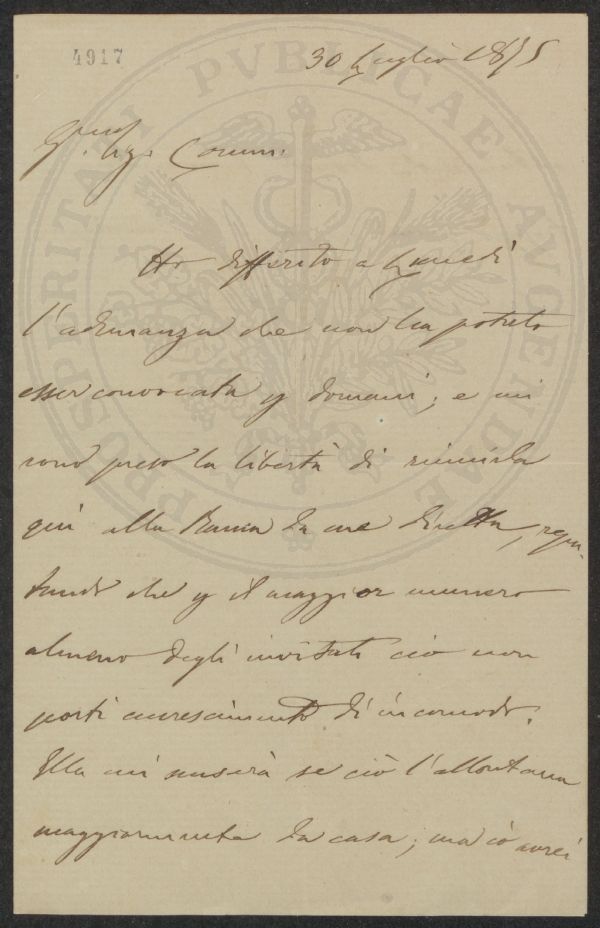 4917
30 Luglio 1875
PROSPERITATI PVBLICAE AVGENDAE
Sig. Comm.
Ho differito a Lunedì
l'adunanza che non ha potuto
esser convocata p domani; e mi
sono preso la libertà di riunirla
qui alla Banca da me diretta, repu-
tando che p il maggior numero
almeno degli invitati ciò non
porti accrescimento di incomodo.
Ella mi scuserà se ciò l'allontana
maggiormente da casa; ma io avrei